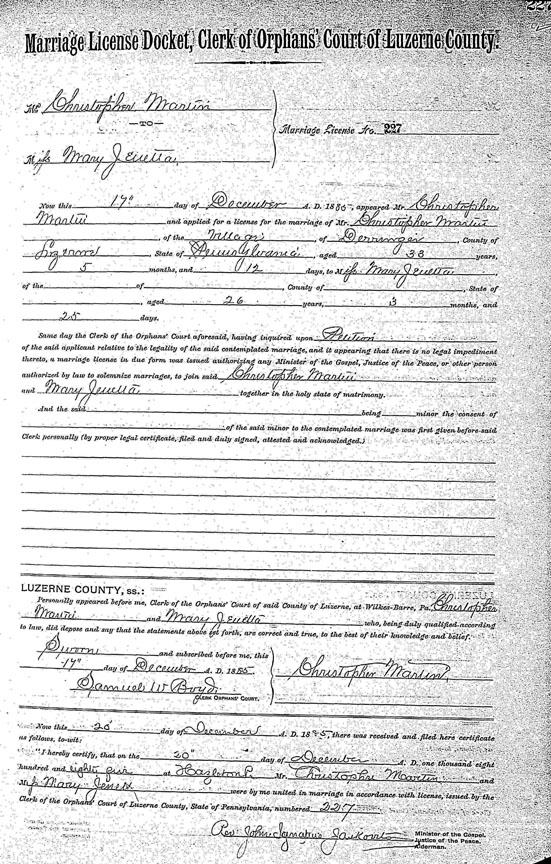 227
Marriage License Docket, Clerk of Orphans' Court of Luzerne County.
Mr. Christopher Martin
—TO—
Marriage License No. 227
Miss Mary Jenetta
Now this 17" day of December A. D. 1885, appeared Mr. Christopher
Martin and applied for a license for the marriage of Mr. Christopher Martin
, of the Village of Derringer, County of
Luzerne, State of Pennsylvania, aged 33 years,
5 months, and 12 days, to Miss Mary Jenetta
of the of , County of , State of
, aged 26 years, 3 months, and
25 days.
Same day the Clerk of the Orphans' Court aforesaid, having inquired upon Petition
of the said applicant relative to the legality of the said contemplated marriage, and it appearing that there is no legal impediment
thereto, a marriage license in due form was issued authorizing any Minister of the Gospel, Justice of the Peace, or other person
authorized by law to solemnize marriages, to join said Christopher Martin
and Mary Jenetta together in the holy state of matrimony.
And the said being minor the consent of
of the said minor to the contemplated marriage was first given before said
Clerk personally (by proper legal certificate, filed and duly signed, attested and acknowledged.)
LUZERNE COUNTY, ss.:
Personally appeared before me, Clerk of the Orphans' Court of said County of Luzerne, at Wilkes-Barre, Pa. Christopher
Martin and Mary Jenetta who, being duly qualified according
to law, did depose and say that the statements above set forth, are correct and true, to the best of their knowledge and belief.
Sworn and subscribed before me, this
17" day of December A. D. 1885
Christopher Martin
Samuel W Boyd
CLERK ORPHANS' COURT.
Now this 20" day of December A. D. 1885, there was received and filed here certificate
as follows, to-wit:
"I hereby certify, that on the 20" day of December A. D. one thousand eight
hundred and eighty five at Hazleton Pa Mr. Christopher Martin and
Miss Mary were by me united in marriage in accordance with license, issued by the
Clerk of the Orphans' Court of Luzerne County, State of Pennsylvania, numbered 227
Rev. John Ignatius
Minister of the Gospel.
Justice of the Peace.
Alderman.